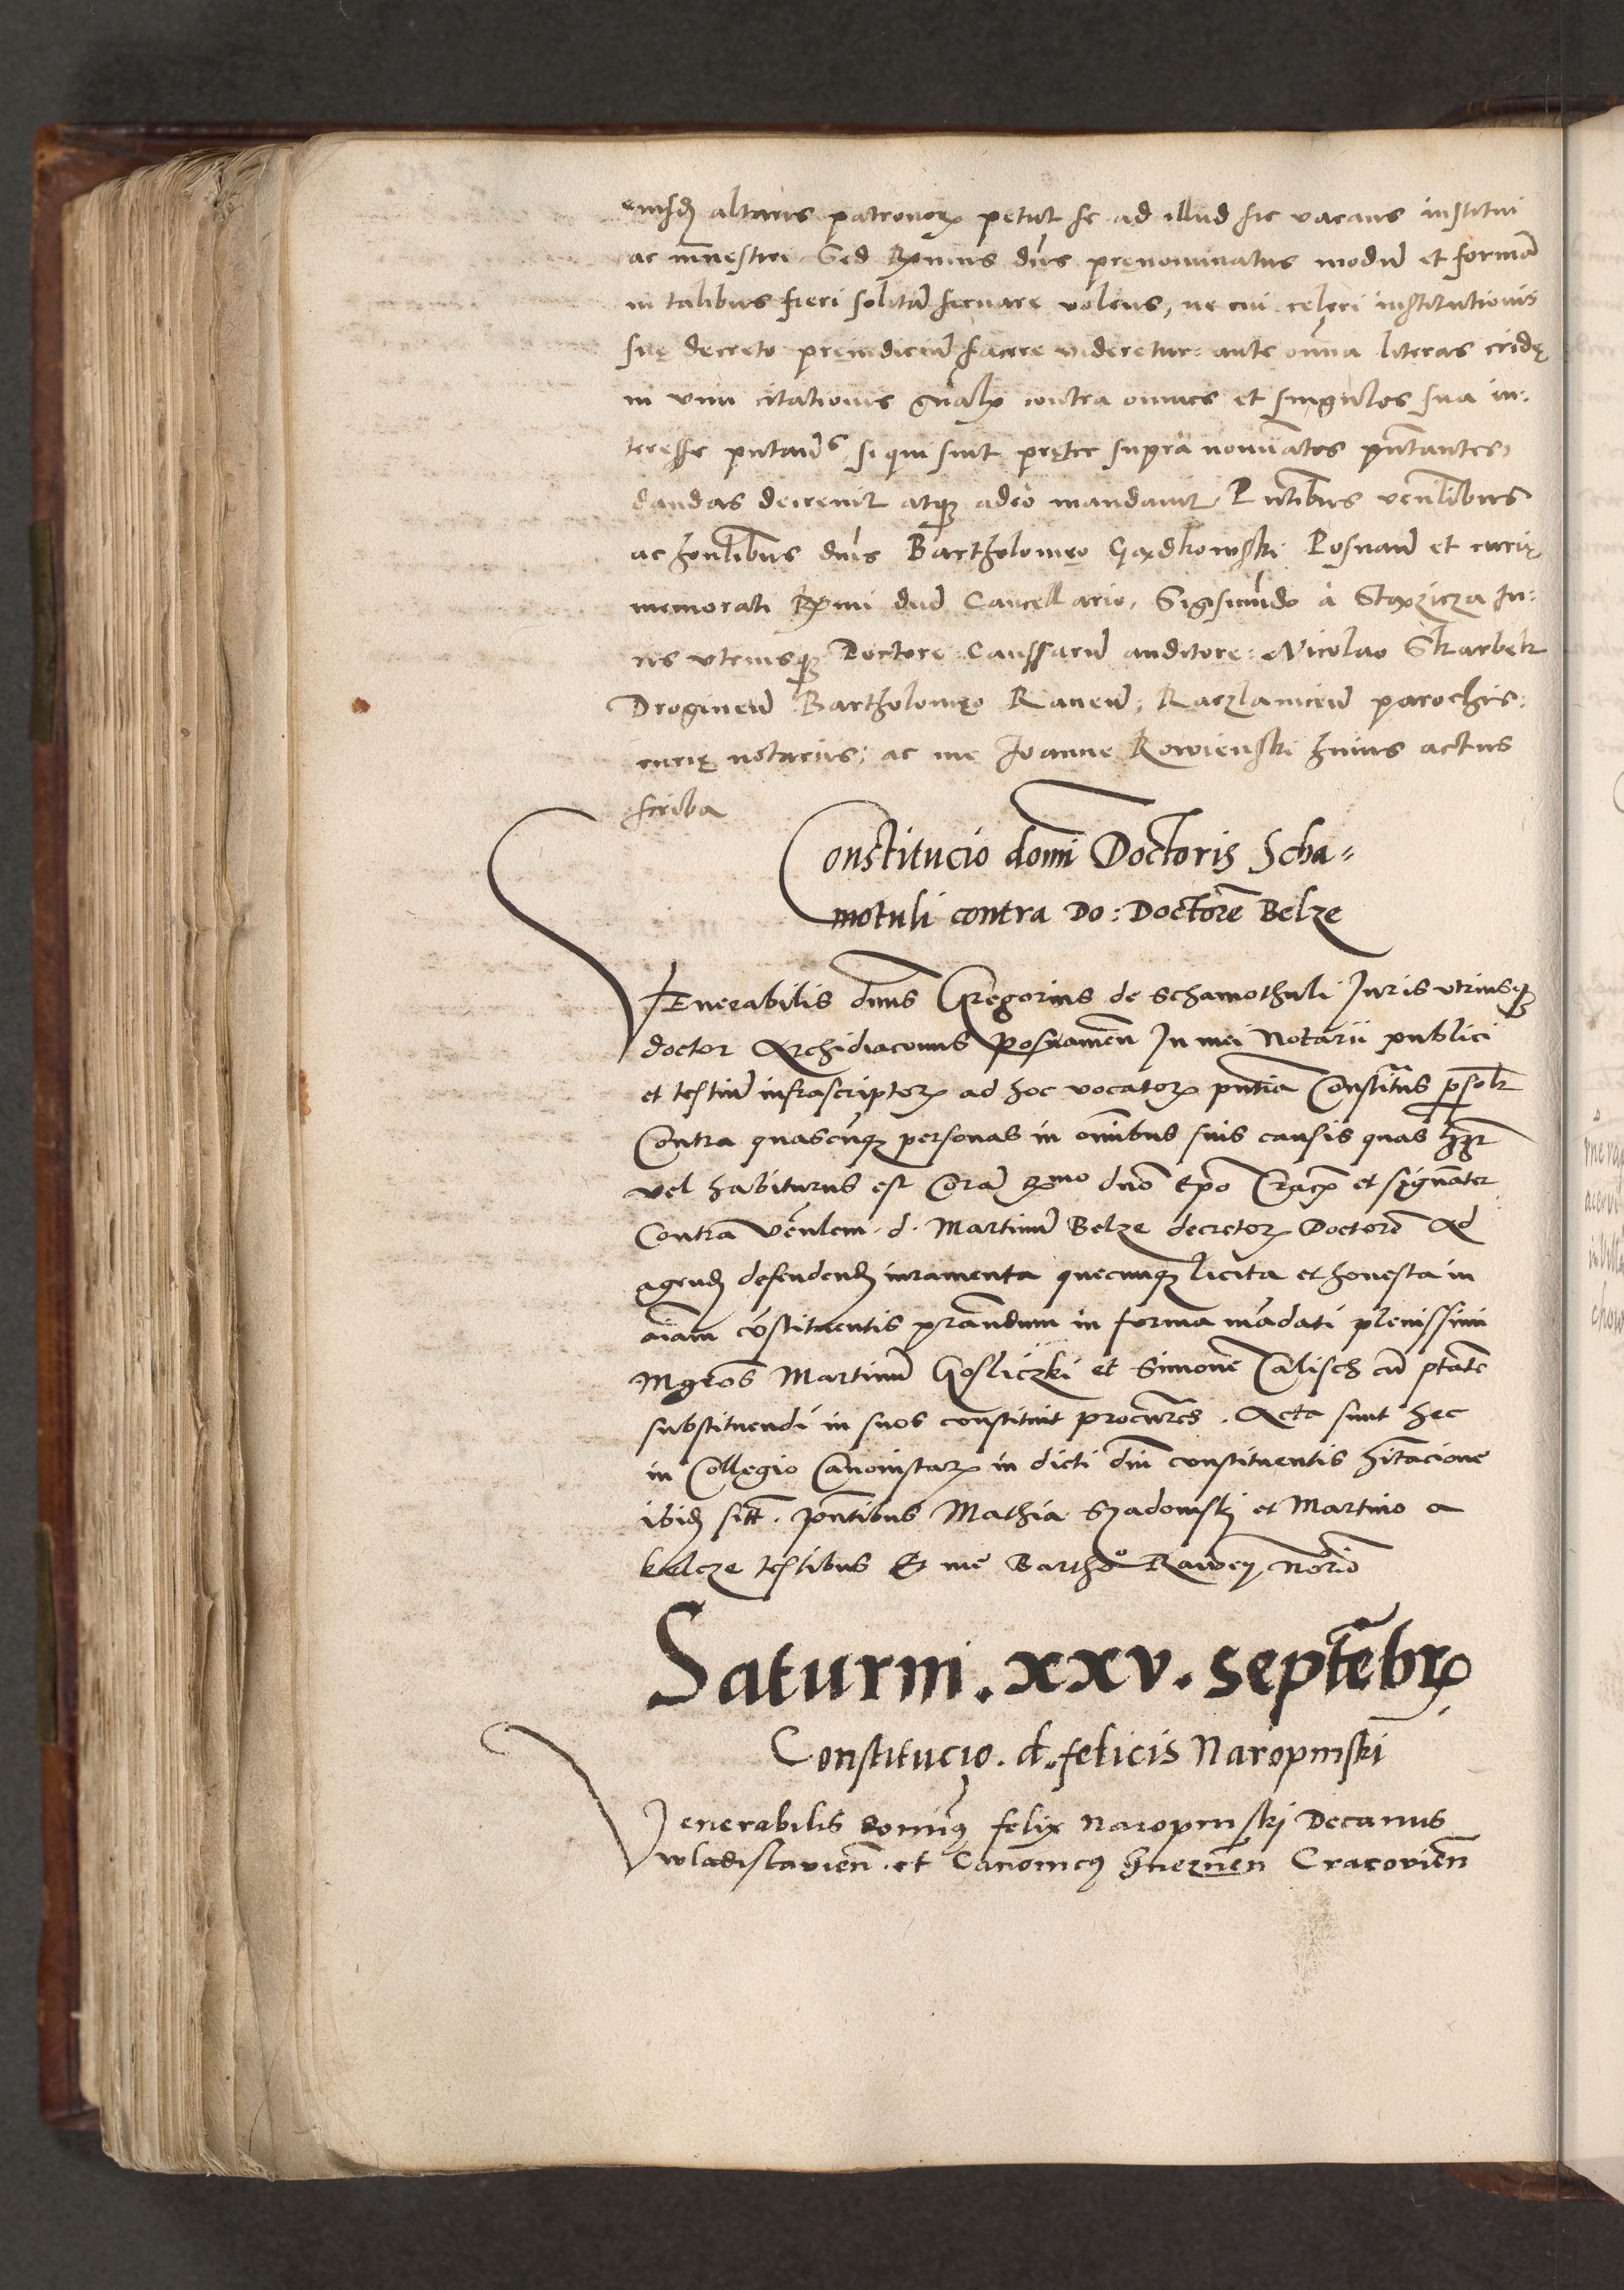 eiusd altaris patronorꝝ petut se ad illud sic vacans institui
ac inuestiri. Sed Rꝑmus dns prenominatus modū et formā
in talibus fieri solitā seruare volens, ne cui celeri institutionis
suę decreto preiudiciū facere videretur: ante omnia literas cridę
in vim citationis gnalꝭ contra omnes et singulos sua in:
teresse putan̄s, si qui sint pręter supra nominatos pntantes,
dandas decreuit atqꝫ adeo mandauit. Pntibus venlibus
ac honlibus dnis Bartholomęo Gądkowski Posnan̄ et curię
memorati Rꝑmi dnd Cancellario, Sigismūdo à Stęzicza Iu:
ris vtriusqꝫ Doctore: Caussarū auditore: Nicolao Skarbek
Droginen̄ Bartholomęo Rauen̄, Raczlauicen̄ parochis:
curię notariis: ac me Joanne Kowienski huius actus
scriba
Constitucio domi Doctoris Scha=
motuli contra Do: Doctorē Belze
Venerabilis dnus Gregorius de Schamothuli Juris vtriusqꝫ
doctor Archidiaconus Posnanien̄ In mei Notarii publici
et testiū infrascriptorꝝ ad hoc vocatorꝝ pntia Constitus psolr
Contra quascūqꝫ personas in omnibus suis causis quas
vel habiturus est Corā Rmo dno Epo Cracꝭ et signāter
Contra vēnlem. d. Martinū Belze decretorꝝ Doctorē Ad
agend defendend iuramenta quecunqꝫ licita et honesta in
aīam cōstituentis prāndum in forma mādati plenissimi
Mgros Martinū Gosliczki et Simonē Calisch cū ptāte
substituendi in suos constituit procurēs. Acta sunt hec
in Collegio Canonistarꝝ in dicti dni constituentis hītacione
ibid sitt. pntibus Mathia Szadowskj et Martino a
kelcze testibus Et me Bartho Rawen̄ Norio
Saturni. xxv. septēbrꝭ
Constitucio. d. felicis Naropinski
Venerabilis dominꝰ felix Naropinskj Decanus
wladislauien̄. et Canonicꝰ Gneznen̄ Cracouien̄